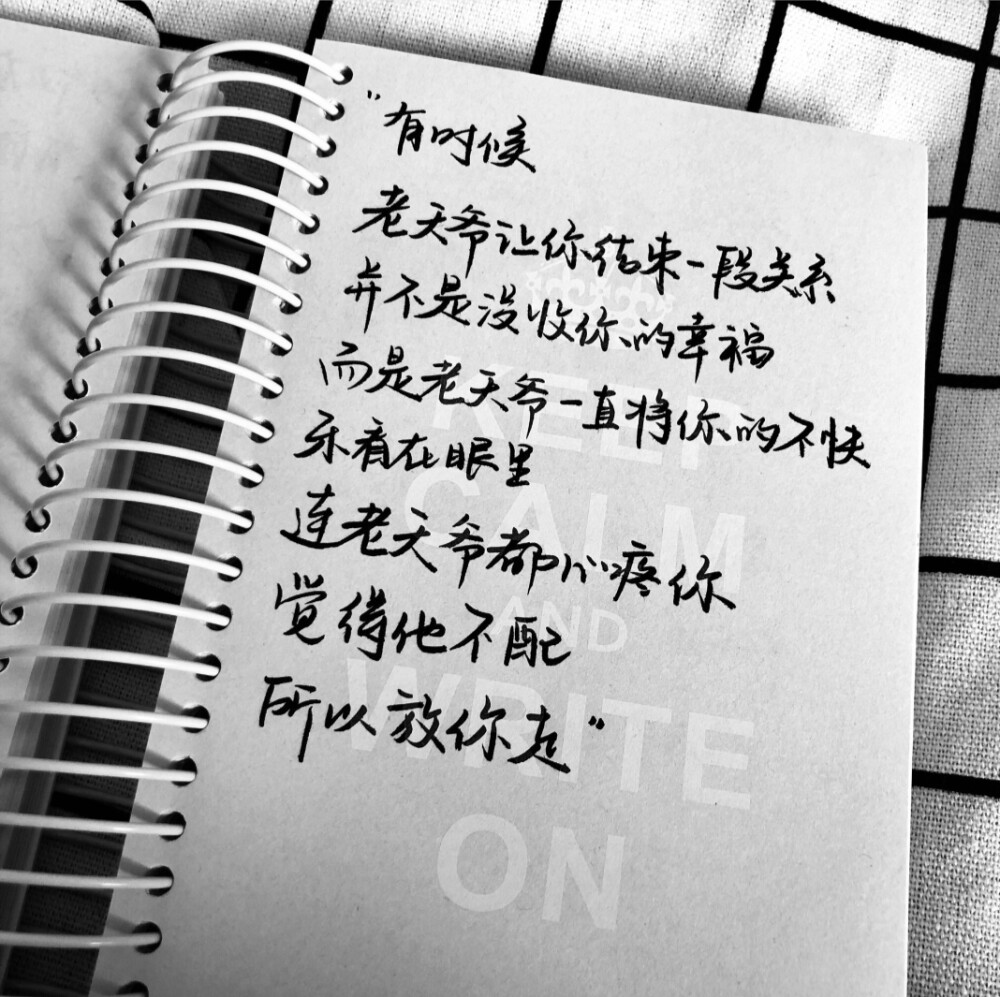 "有时候
老天爷让你结束一段关系
并不是没收你的幸福
而是老天爷一直将你的不快
乐看在眼里
连老天爷都心疼你
觉得他不配
所以放你走"
KEEP
CALM
AND
WRITE
ON